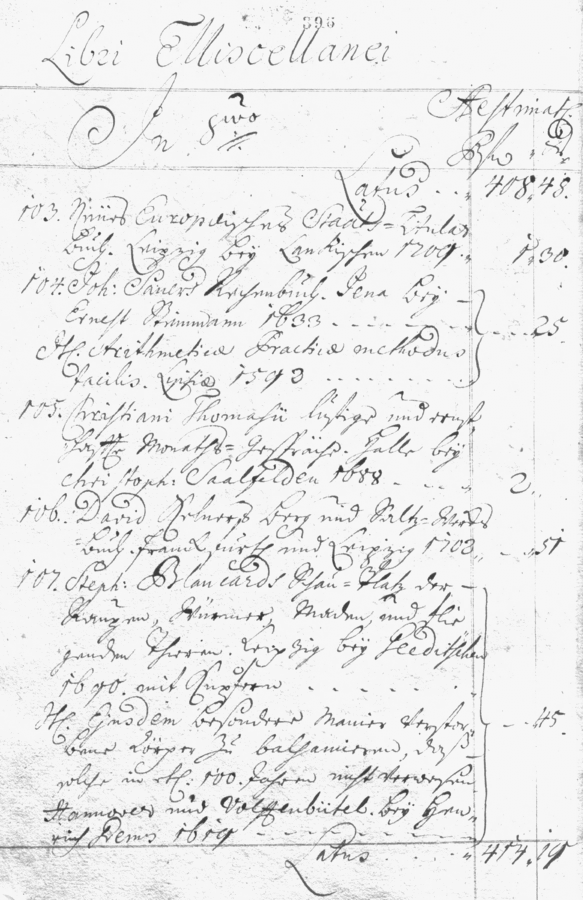 396
Libri Miscellanei
In 8vo
Aestimat.
Latus . . . 408. 48.
103. Neües Europäisches Staats-Titular
buch. Leipzig bey Lanckischen 1709. 1. 30.
104. Joh: Sauers Rechenbuch. Jena bey
Ernest 1633 25.
It. Arithmeticæ Practicæ methodus
facilis. Lipsiæ 1593
105. Christiani Thomasii lustige und ernst
haffte Monaths-Gespräche. Halle bey
Christoph: Saalfelden 1688 2.
106. David Kelners Berg und Saltz-Wercks
buch. Franckfurth und Leipzig 1702 51
107. Steph: Blancards Schau-Platz der
Raupen, Würmer, Maden und flie
genden Thieren. Leipzig bey Gleditschen
1690. mit Kupfern
It. Ejusdem besondere Manier verstor 45.
bene Cörper zu balsamieren, daß
solche in etl: 100. Jahren nicht verwesen
Hannover und Wolffenbüttel. bey Hen
rich
Latus 414. 19